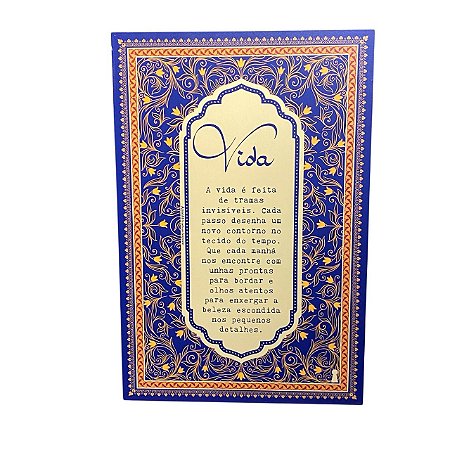 Vida
A vida é feita
de tramas
invisíveis. Cada
passo desenha um
novo contorno no
tecido do tempo.
Que cada manhã
nos encontre com
unhas prontas
para bordar e
olhos atentos
para enxergar a
beleza escondida
nos pequenos
detalhes.